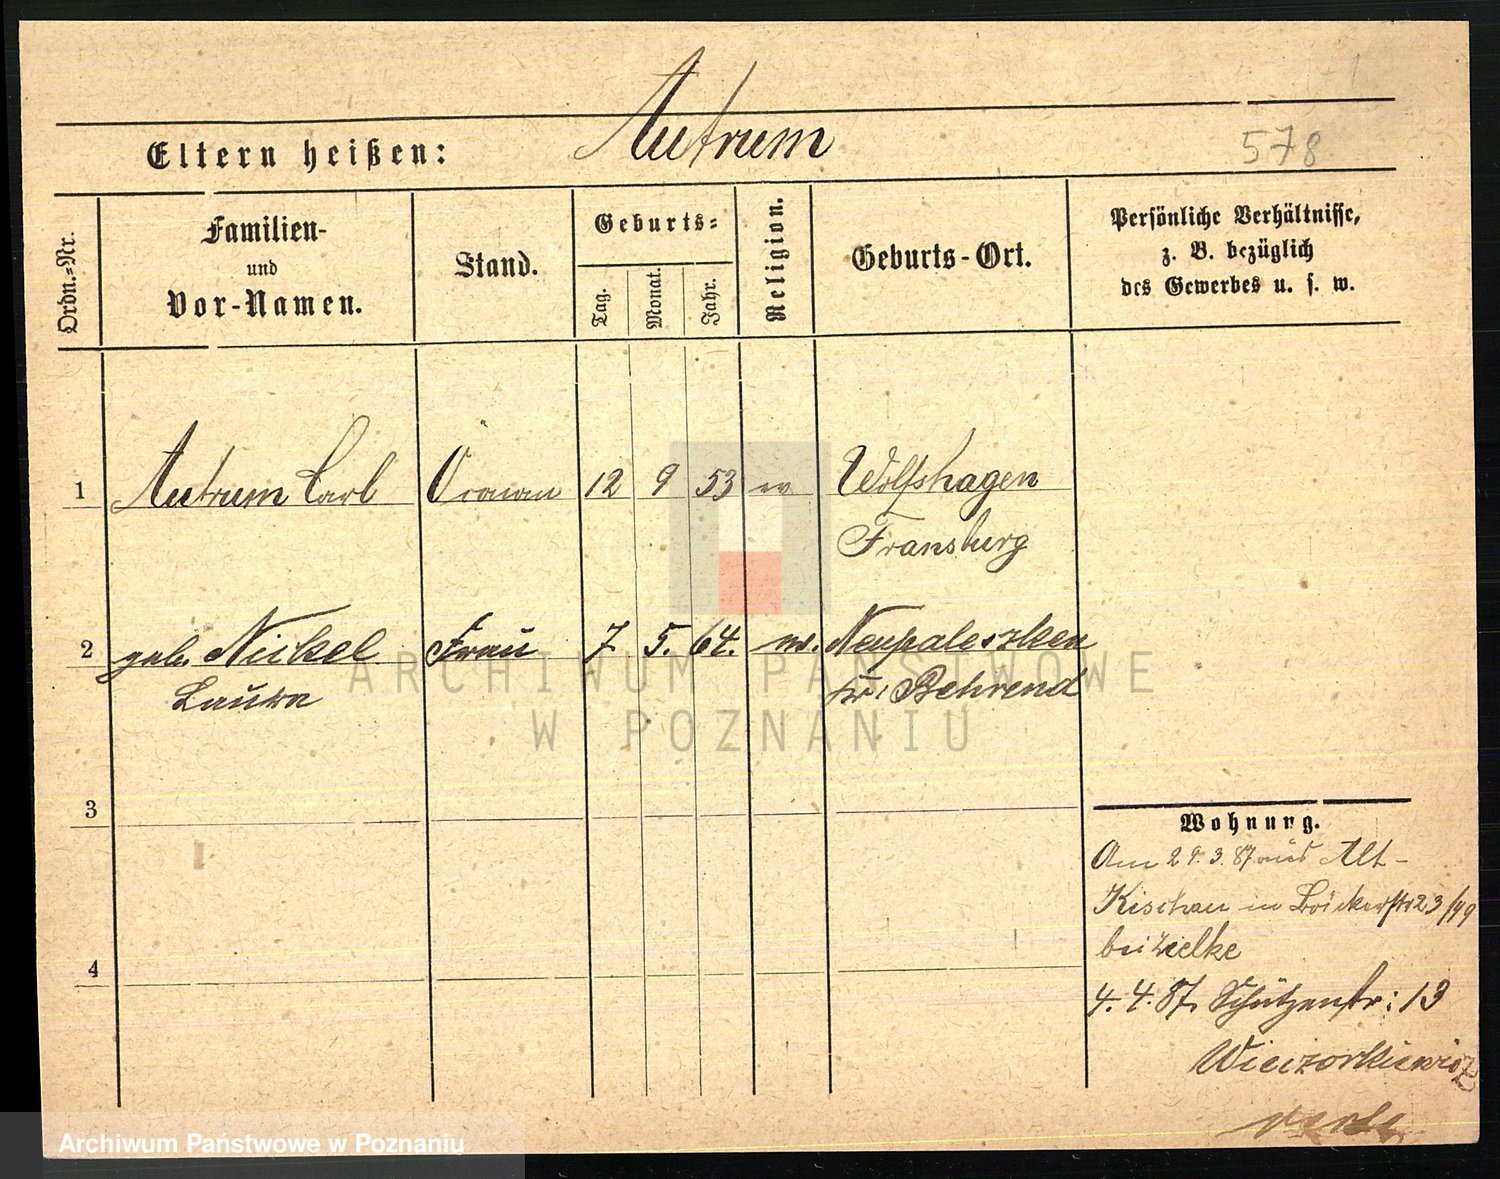 Autrum
Eltern heißen:
578
Ordn.=Nr.
Familien-
und
Vor-Namen.
Stand.
Geburts=
Tag.
Monat.
Jahr.
Religion.
Geburts-Ort.
Persönliche Verhältnisse,
z. B. bezüglich
des Gewerbes u. s. w.
1 Autrum Carl 12 9 53 Wolfshagen
Fransburg
2 geb. Nickel Frau 7. 5. 64. Neupaleszken
Laura Behrend
3
4
Wohnung.
Am 29.3.87 aus Alt-
Kischau in Bäckerstr 23/
bei Zielke
4.4.87. Schützenstr: 13
Wieczorkiewicz
verte
ARCHIWUM PAŃSTWOWE
W POZNANIU
Archiwum Państwowe w Poznaniu